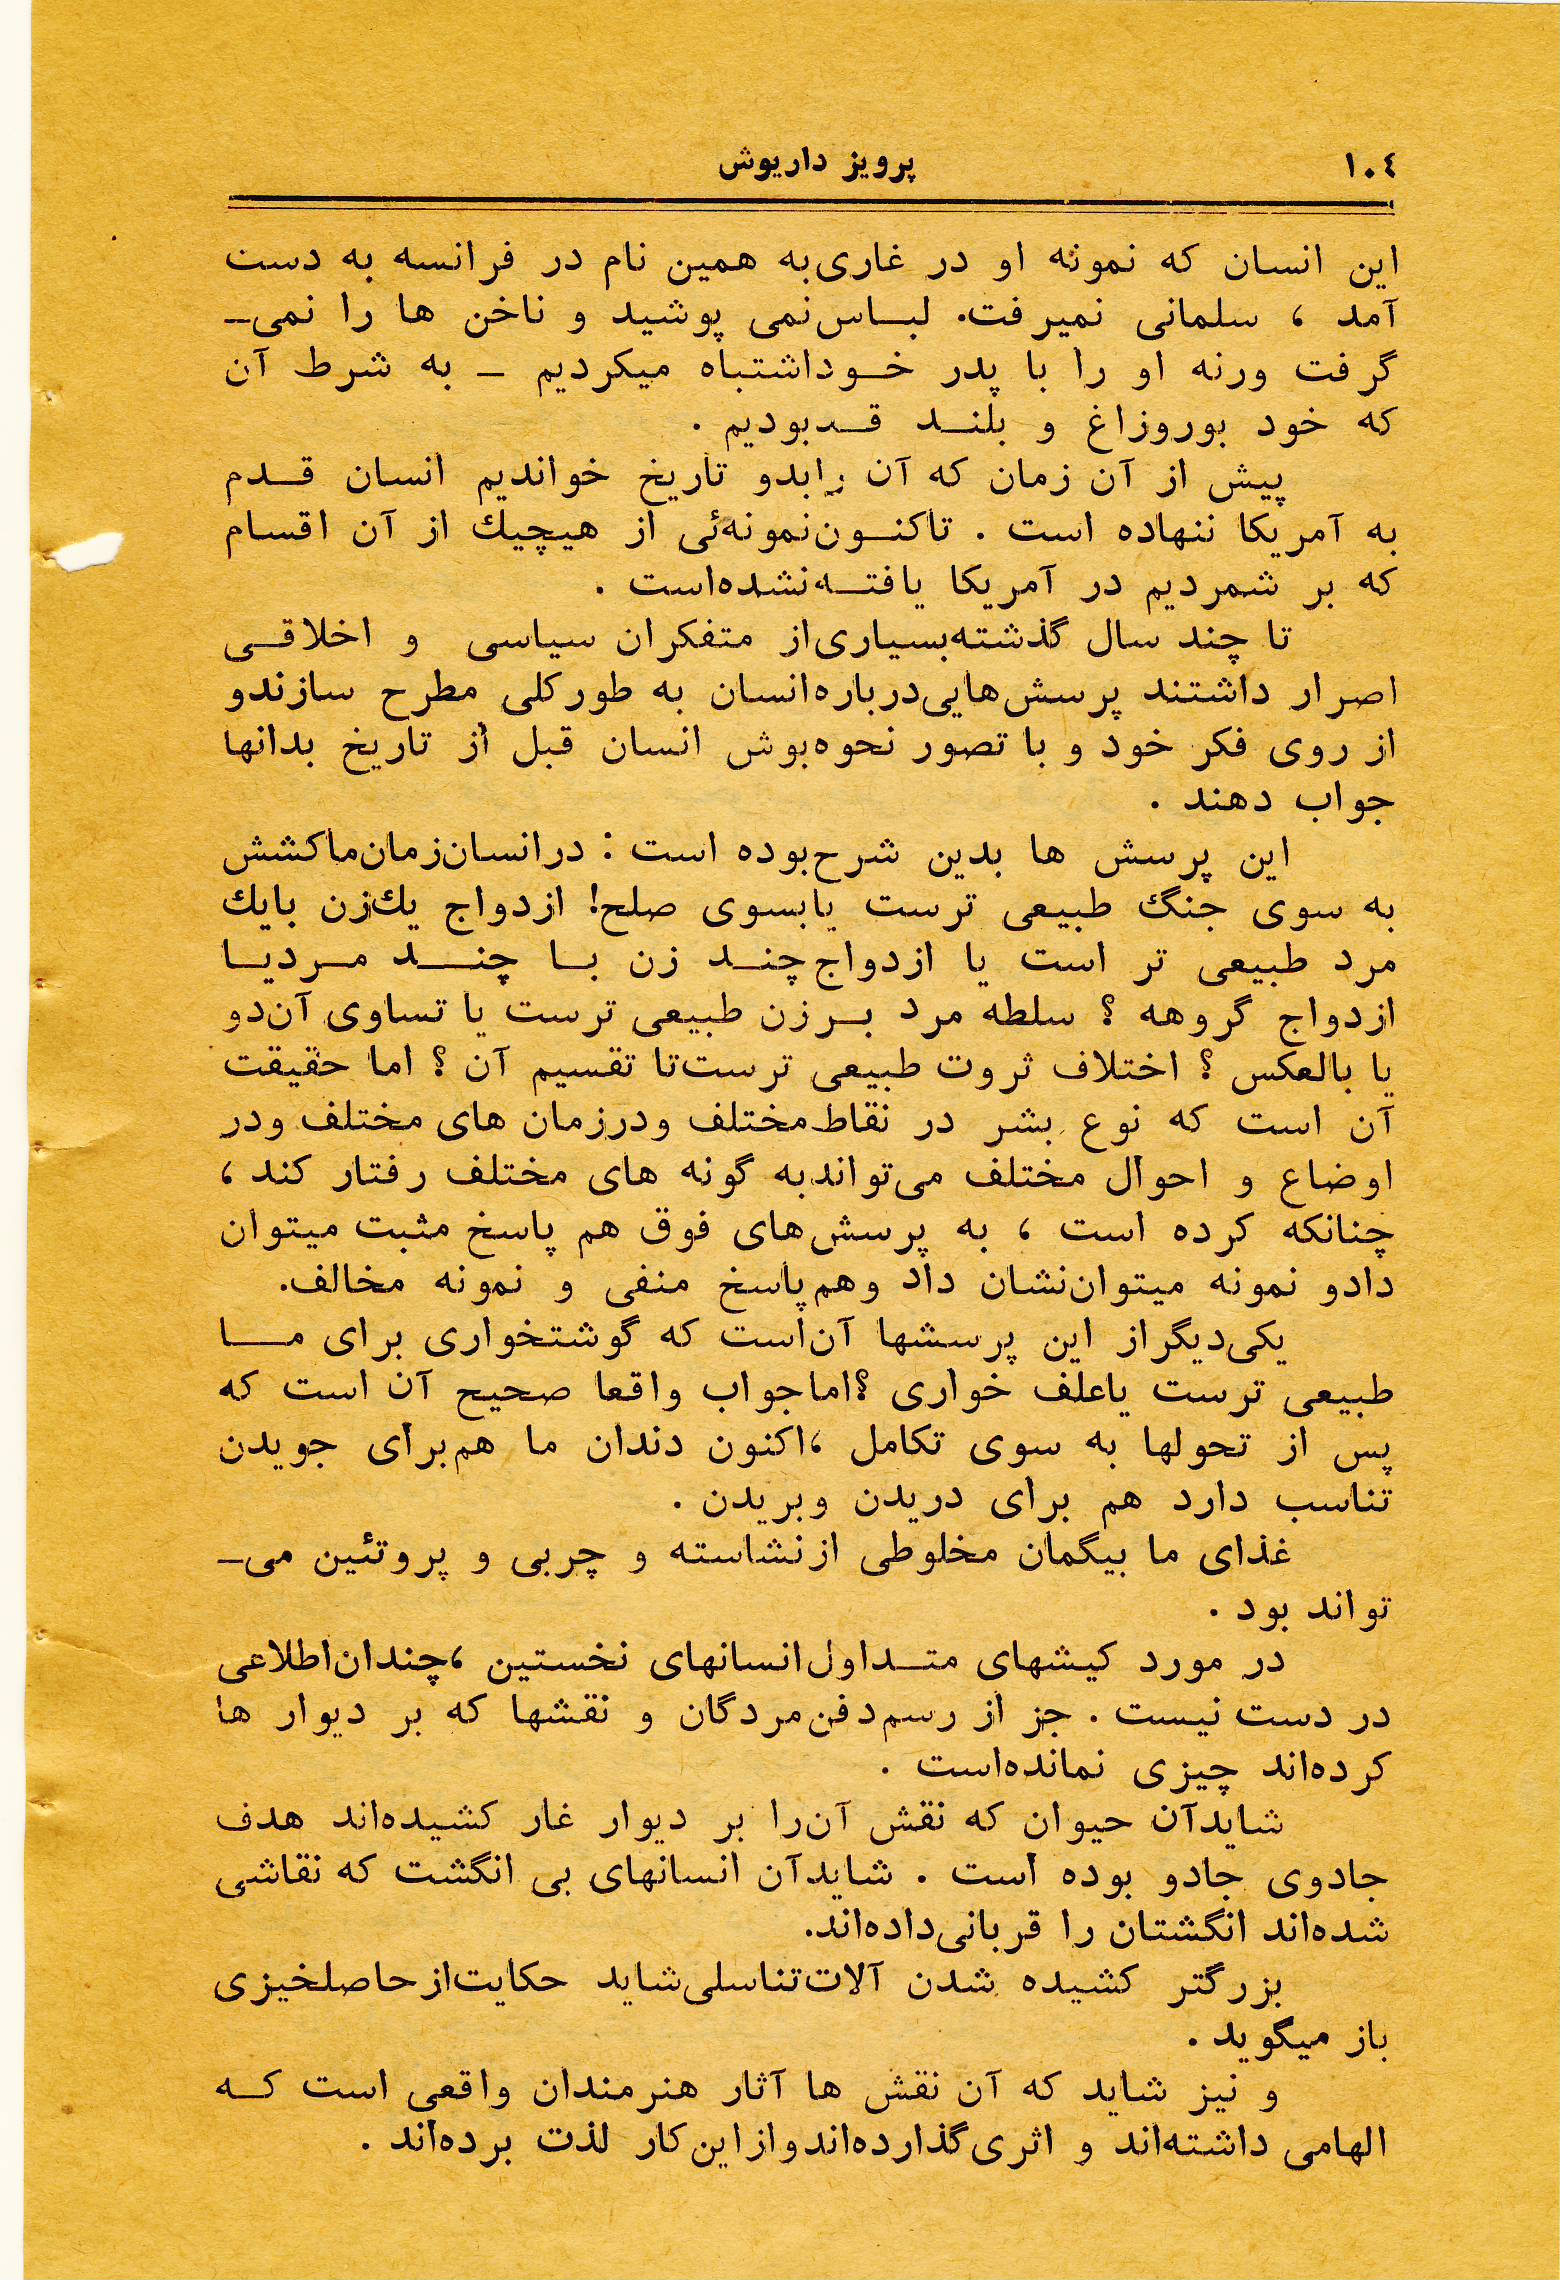 ١٠٤
پرویز داریوش
این انسان که نمونه او در غاری به همین نام در فرانسه به دست
آمد ، سلمانی نمیرفت. لبـاس نمی پوشید و ناخن ها را نمی‌ـ
گرفت ورنه او را با پدر خـود اشتباه میکردیم ـ به شرط آن
که خود بور و زاغ و بلنـد قـد بودیم .
پیش از آن زمان که آن را بدو تاریخ خواندیم انسان قـدم
به آمریکا ننهاده است . تاکنـون نمونه‌ئی از هیچیك از آن اقسام
که بر شمردیم در آمریکا یافتـه نشده‌است .
تا چند سال گذشته بسیاری از متفکران سیاسی و اخلاقـی
اصرار داشتند پرسش‌هایی درباره انسان به طور کلی مطرح سازند و
از روی فکر خود و با تصور نحوه بوش انسان قبل از تاریخ بدانها
جواب دهند .
این پرسش ها بدین شرح بوده است : در انسان زمان ما کشش
به سوی جنگ طبیعی ترست یا بسوی صلح! ازدواج یك زن با یك
مرد طبیعی تر است یا ازدواج چنـد زن بـا چنـد مـرد یـا
ازدواج گروهه ؟ سلطه مرد بـر زن طبیعی ترست یا تساوی آن دو
یا بالعکس ؟ اختلاف ثروت طبیعی ترست تا تقسیم آن ؟ اما حقیقت
آن است که نوع بشر در نقاط مختلف و در زمان های مختلف و در
اوضاع و احوال مختلف می‌تواند به گونه های مختلف رفتار کند ،
چنانکه کرده است ، به پرسش‌های فوق هم پاسخ مثبت میتوان
داد و نمونه میتوان نشان داد و هم پاسخ منفی و نمونه مخالف.
یکی دیگر از این پرسشها آن است که گوشتخواری برای مـا
طبیعی ترست یا علف خواری ؟ اما جواب واقعا صحیح آن است که
پس از تحولها به سوی تکامل ، اکنون دندان ما هم برای جویدن
تناسب دارد هم برای دریدن و بریدن .
غذای ما بیگمان مخلوطی از نشاسته و چربی و پروتئین می‌ـ
تواند بود .
در مورد کیشهای متـداول انسانهای نخستین ، چندان اطلاعی
در دست نیست . جز از رسم دفن مردگان و نقشها که بر دیوار ها
کرده‌اند چیزی نمانده‌است .
شاید آن حیوان که نقش آن را بر دیوار غار کشیده‌اند هدف
جادوی جادو بوده است . شاید آن انسانهای بی انگشت که نقاشی
شده‌اند انگشتان را قربانی داده‌اند.
بزرگتر کشیده شدن آلات تناسلی شاید حکایت از حاصلخیزی
باز میگوید .
و نیز شاید که آن نقش ها آثار هنرمندان واقعی است کـه
الهامی داشته‌اند و اثری گذارده‌اند و از این کار لذت برده‌اند .